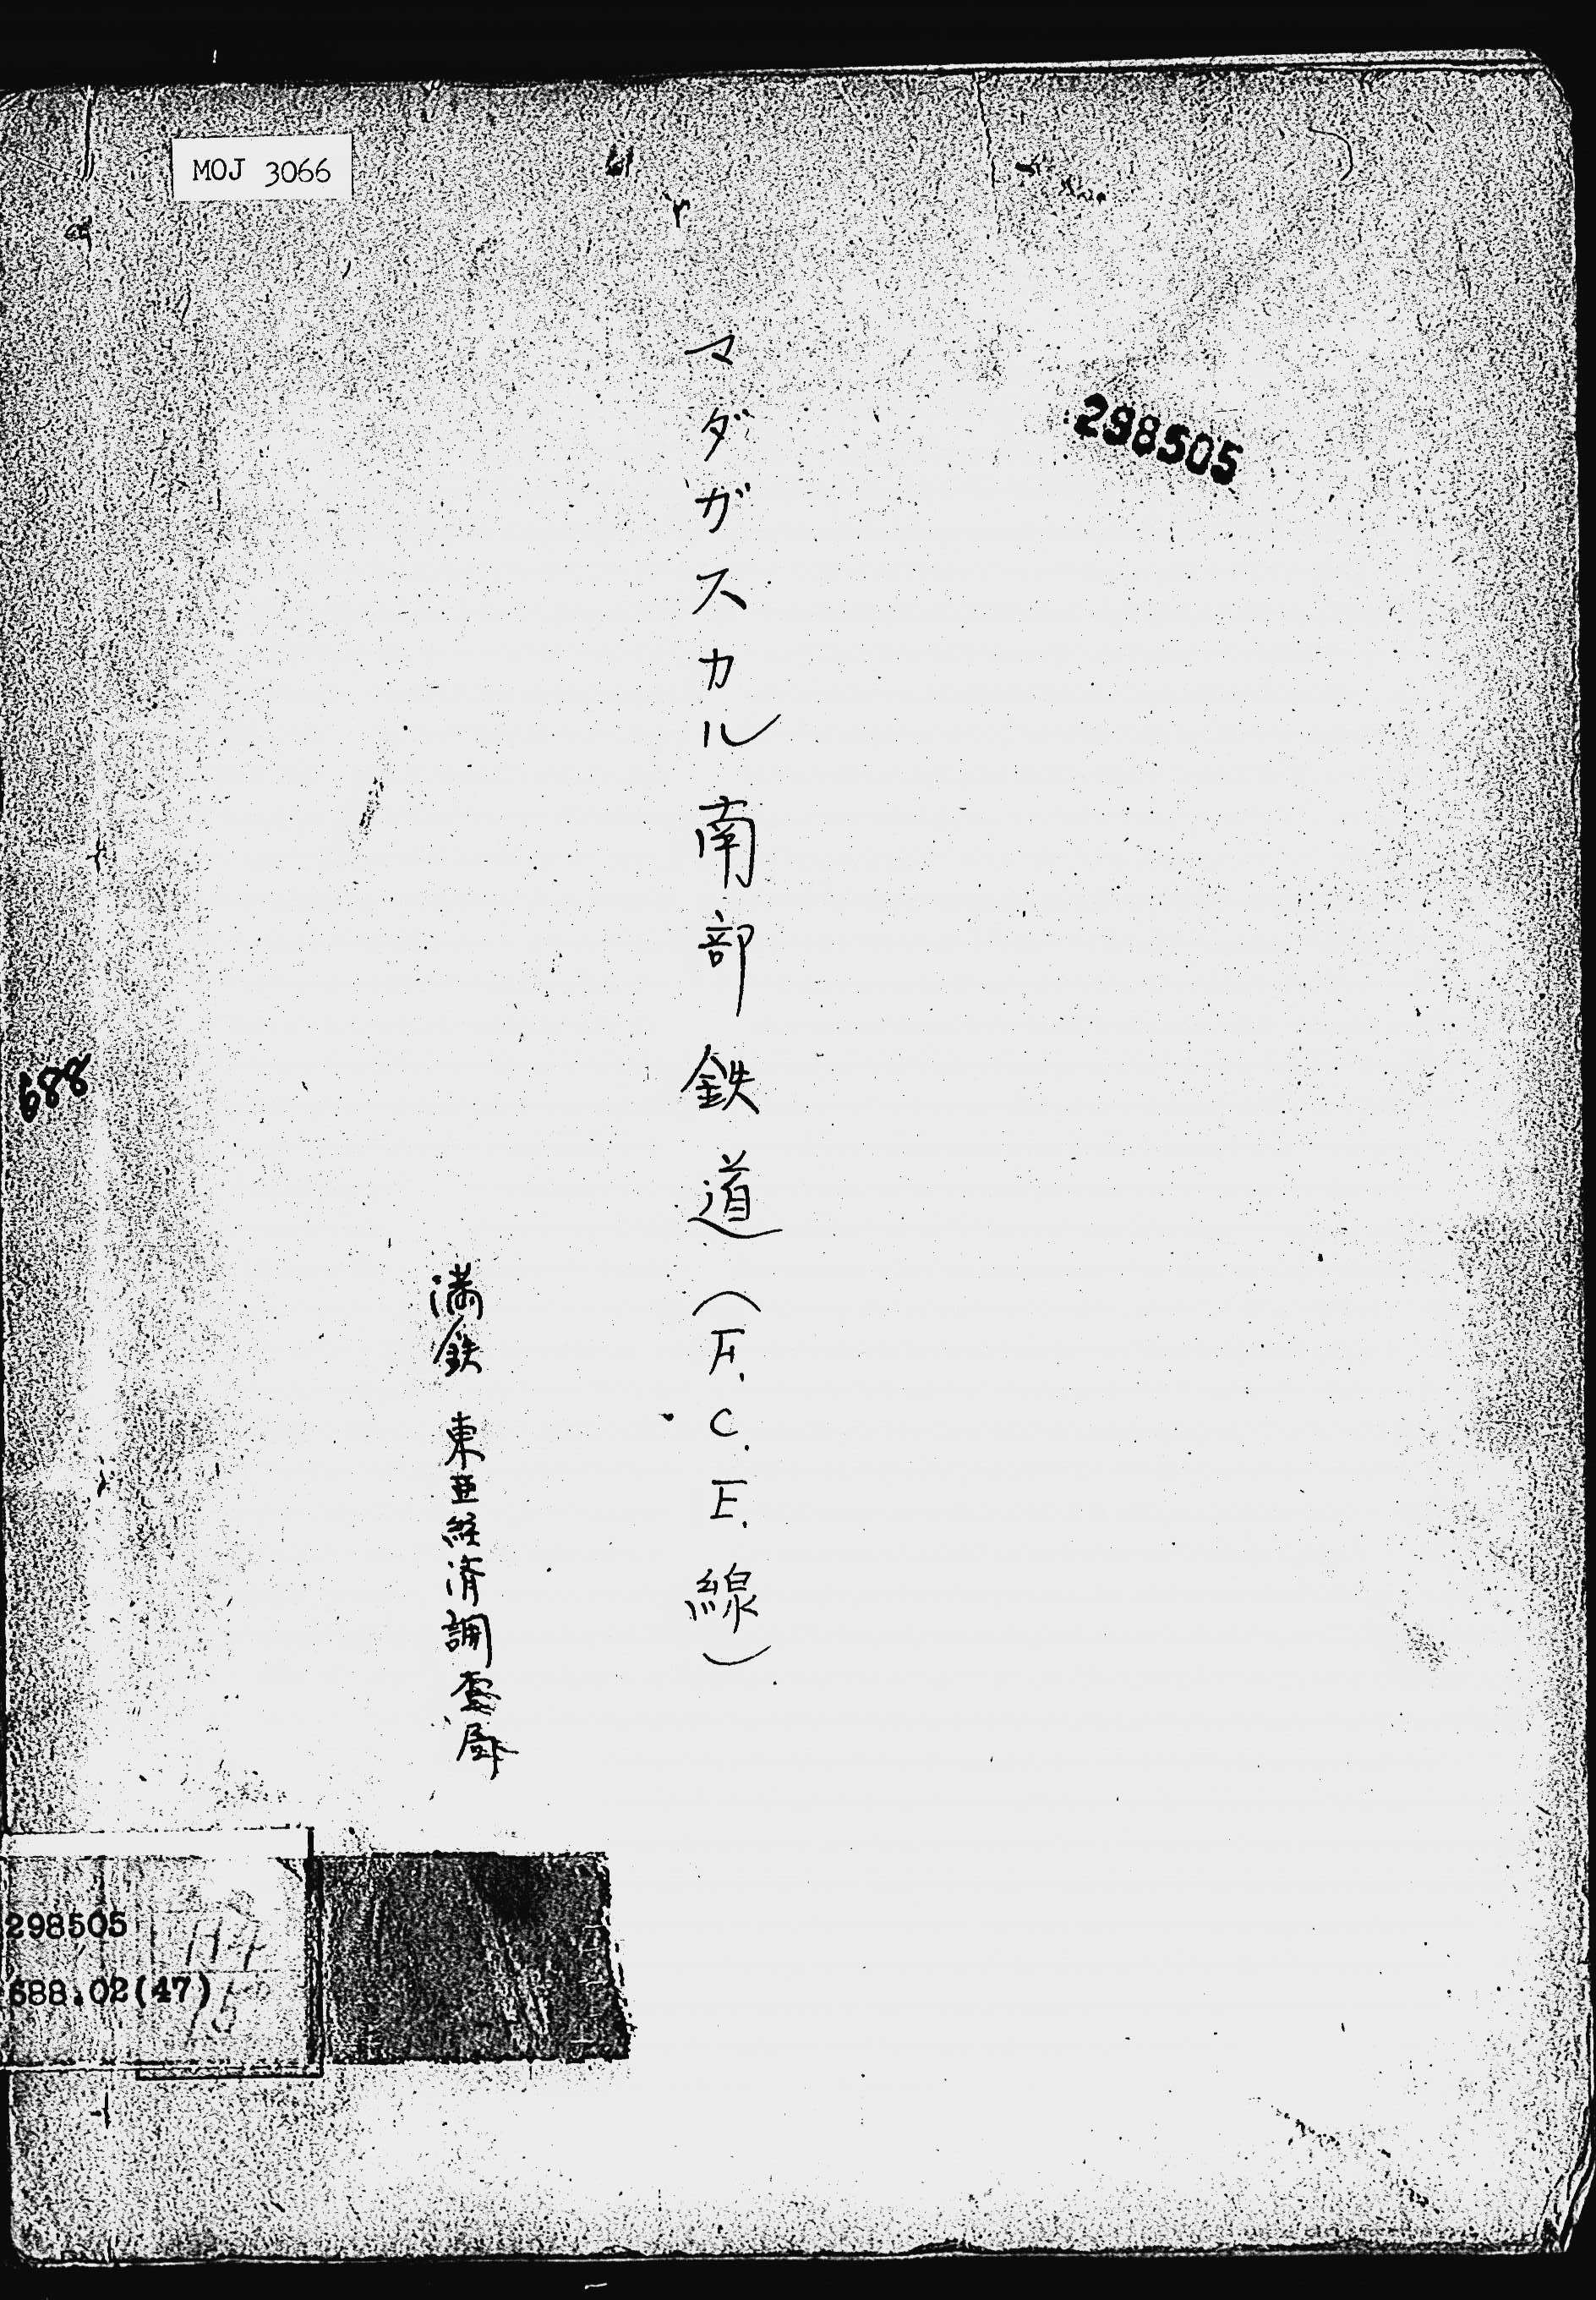 MOJ 3066
298505
マダガスカル南部鉄道(F.C.E.線)
満鉄 東亜経済調査局
688
298505
688.02(47)